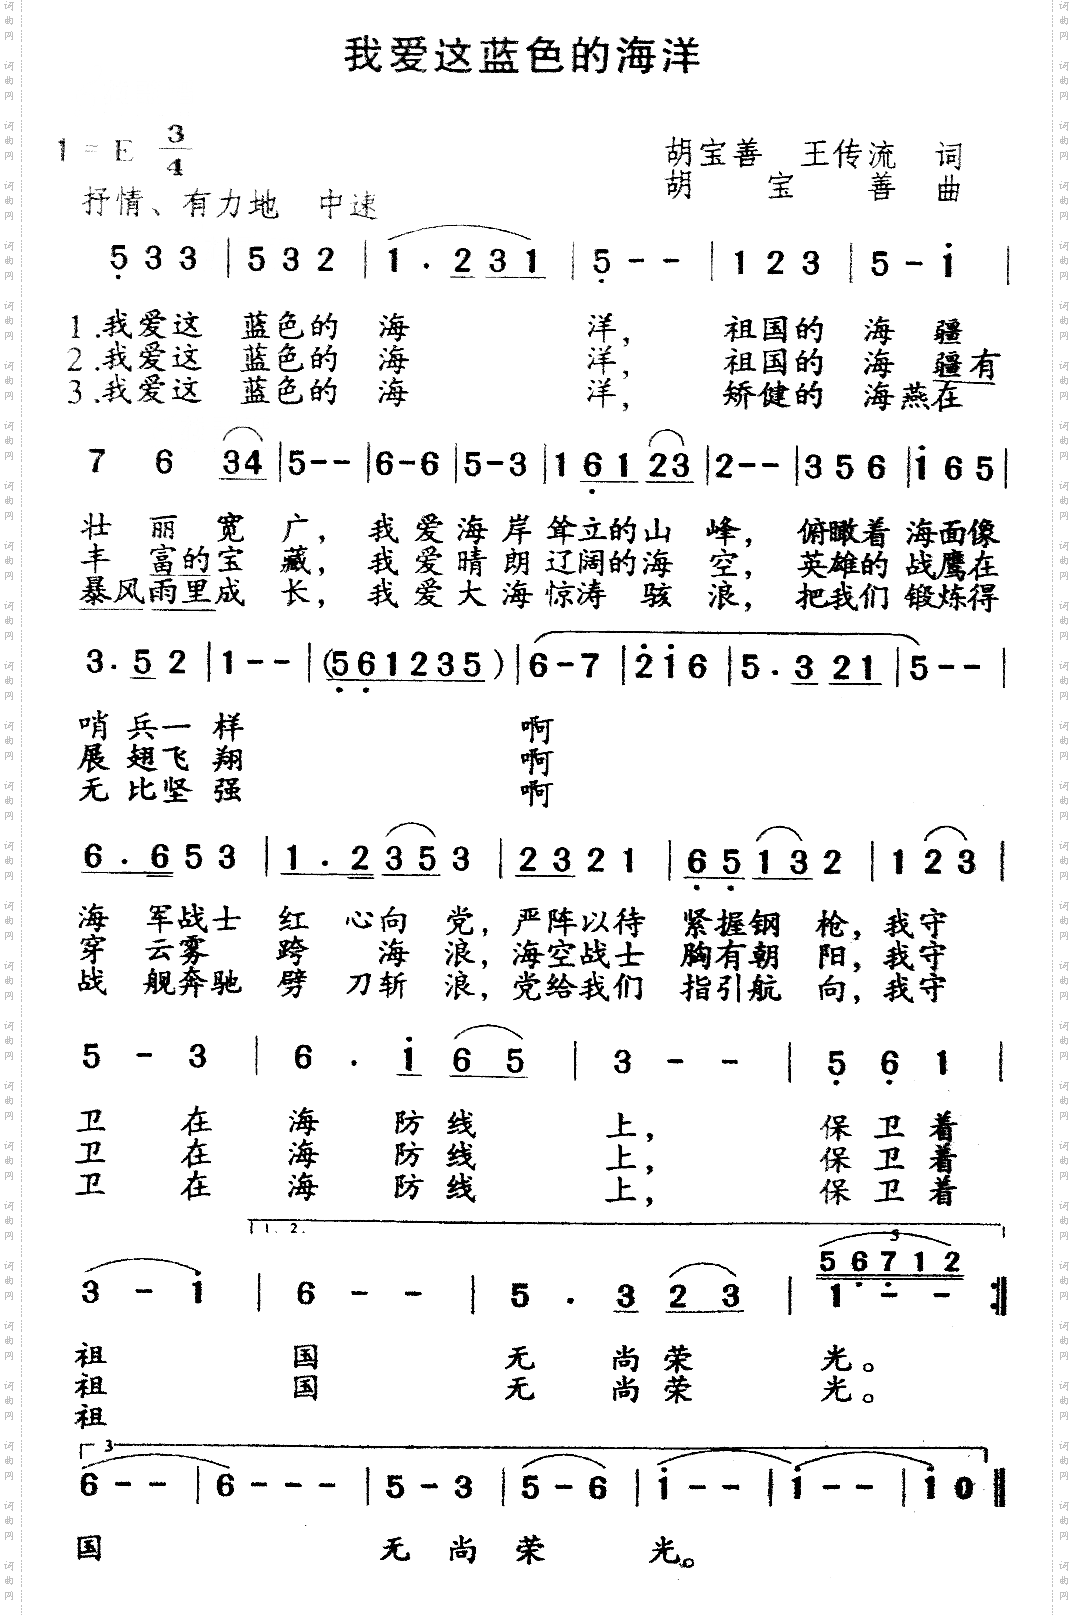 我爱这蓝色的海洋
1=E 3/4
胡宝善 王传流 词
抒情、有力地 中速
胡宝善 曲
5 3 3 | 5 3 2 | 1 . 2 3 1 | 5 - - | 1 2 3 | 5 - i |
1.我爱这 蓝色的 海 洋， 祖国的 海 疆
2.我爱这 蓝色的 海 洋， 祖国的 海 疆有
3.我爱这 蓝色的 海 洋， 矫健的 海燕在
7 6 34 | 5 - - | 6 - 6 | 5 - 3 | 1 6 1 23 | 2 - - | 3 5 6 | i 6 5 |
壮 丽 宽 广， 我 爱 海 岸 耸立的山 峰， 俯瞰着 海面像
丰 富的宝 藏， 我 爱 晴 朗 辽阔的海 空， 英雄的 战鹰在
暴风雨里成 长， 我 爱 大 海 惊涛 骇 浪， 把我们 锻炼得
3 . 5 2 | 1 - - | (5 6 1 2 3 5) | 6 - 7 | 2 i 6 | 5 . 3 2 1 | 5 - - |
哨 兵一 样 啊
展 翅飞 翔 啊
无 比坚 强 啊
6 . 6 5 3 | 1 . 2 3 5 3 | 2 3 2 1 | 6 5 1 3 2 | 1 2 3 |
海 军战士 红 心向 党， 严阵以待 紧握钢 枪， 我守
穿 云雾 跨 海 浪， 海空战士 胸有朝 阳， 我守
战 舰奔驰 劈 刀斩 浪， 党给我们 指引航 向， 我守
5 - 3 | 6 . i 6 5 | 3 - - | 5 6 1 |
卫 在 海 防 线 上， 保 卫 着
卫 在 海 防 线 上， 保 卫 着
卫 在 海 防 线 上， 保 卫 着
1. 2.
5
5 6 7 1 2
3 - i | 6 - - | 5 . 3 2 3 | 1 - - :||
祖 国 无 尚 荣 光。
祖 国 无 尚 荣 光。
祖
3
6 - - | 6 - - | 5 - 3 | 5 - 6 | i - - | i - - | i 0 ||
国 无 尚 荣 光。
词曲网